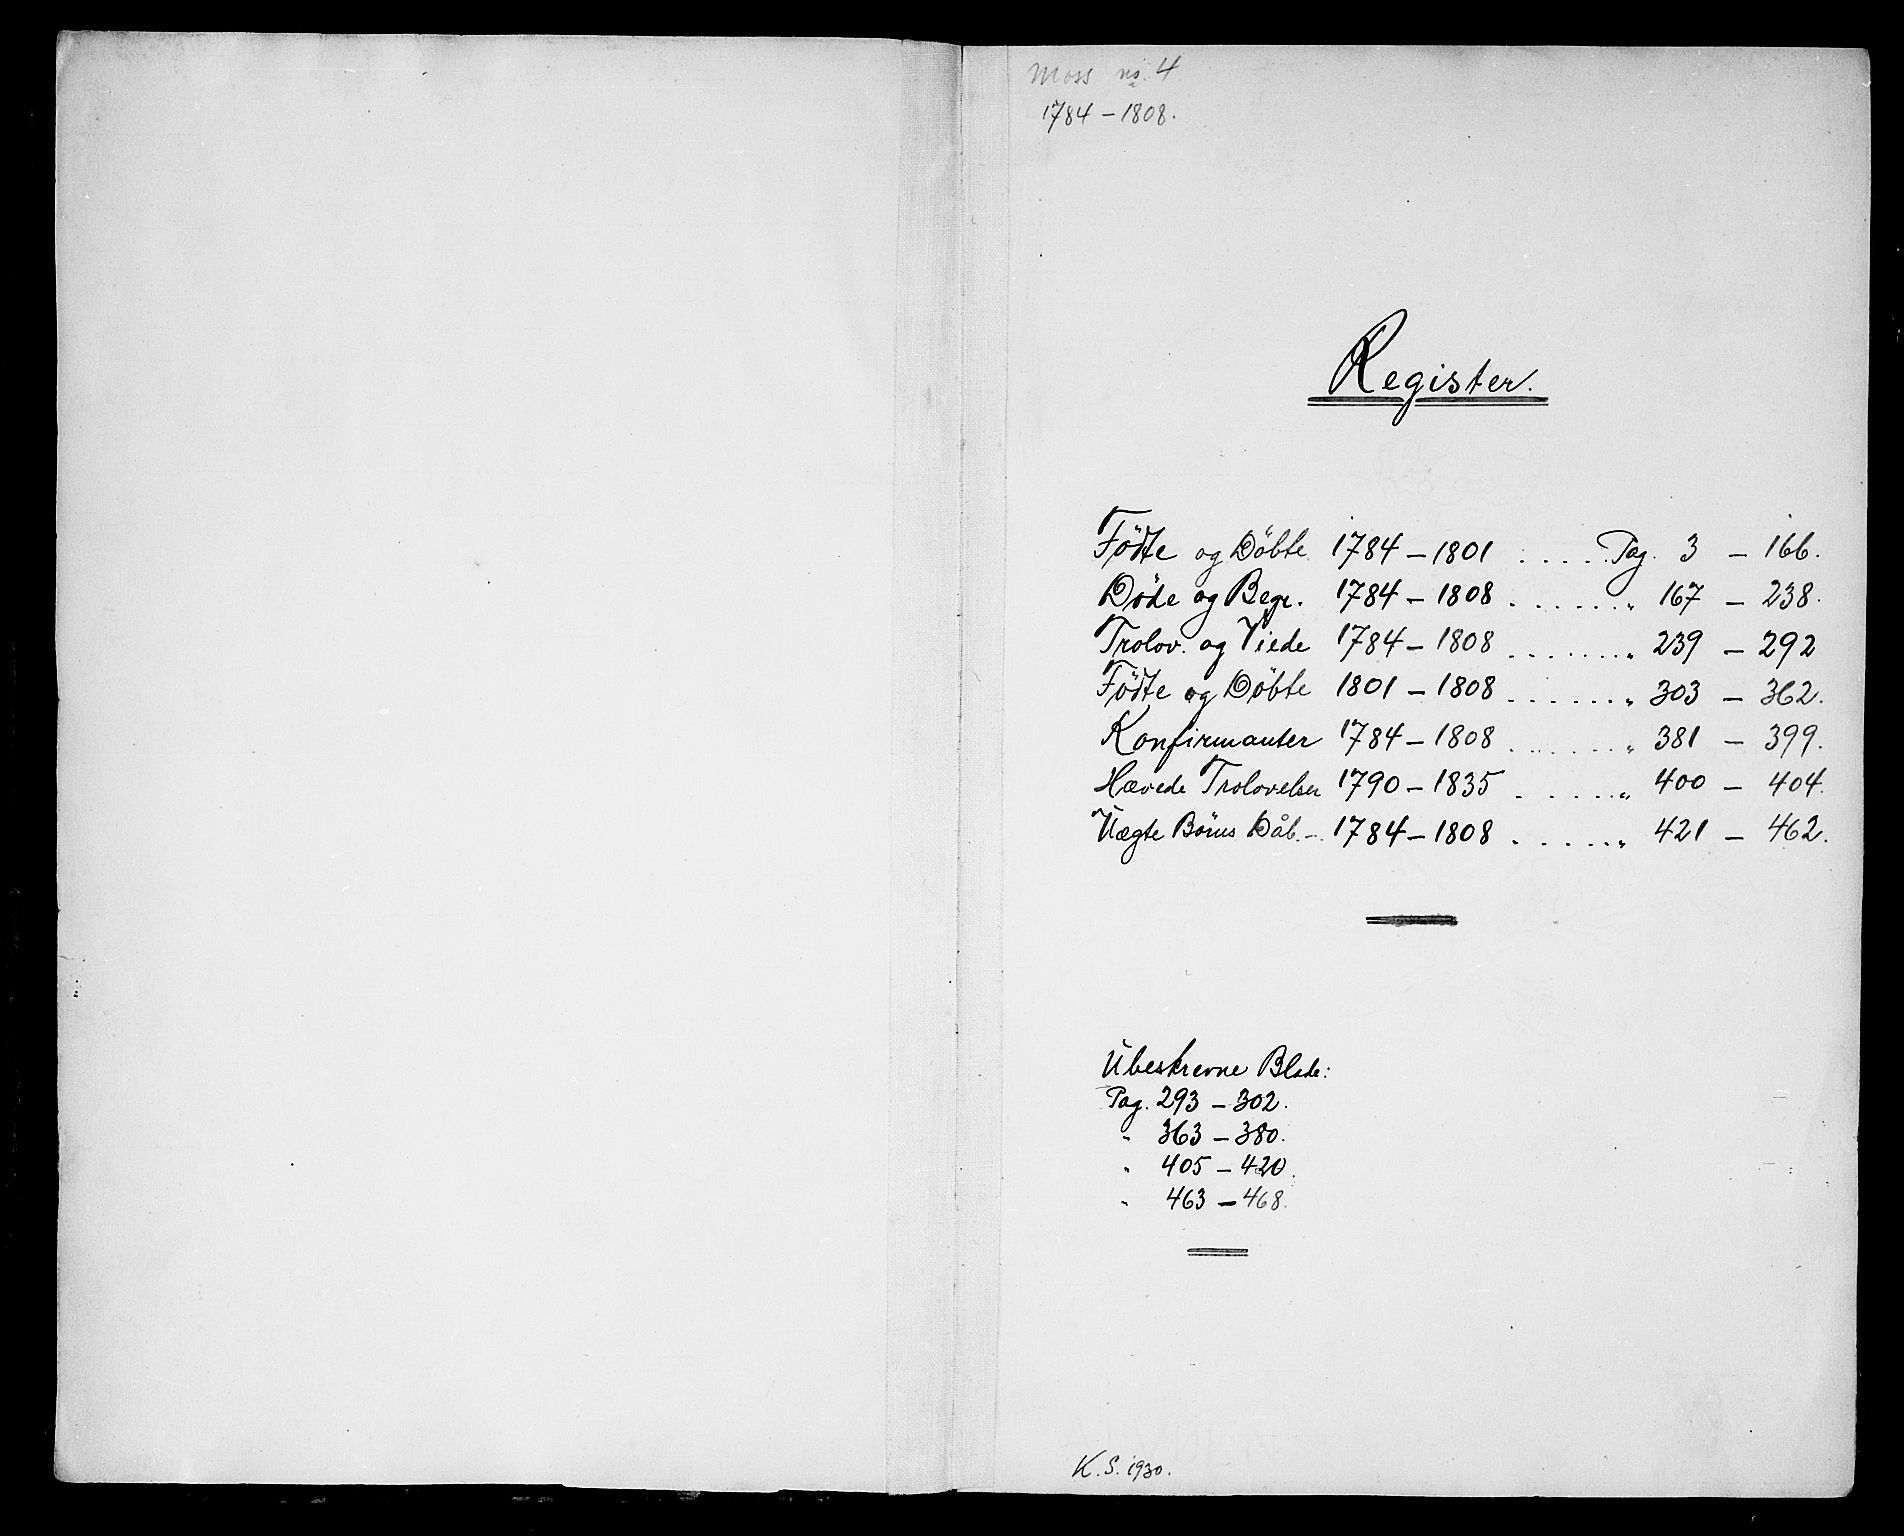 Moss no. 4
1784 – 1808.
Register.
Födte og Döbte 1784 – 1801 . . . . . Pag. 3 – 166.
Döde og Begr. 1784 – 1808 . . . . . . „ 167 – 238.
Trolov. og Viede 1784 – 1808 . . . . . . „ 239 – 292
Födte og Döbte 1801 – 1808 . . . . . . „ 303 – 362.
Konfirmanter 1784 – 1808 . . . . . . „ 381 – 399.
Hævede Trolovelser 1790 – 1835 . . . . . „ 400 – 404.
Uægte Börns Dåb. – 1784 – 1808 . . . . . „ 421 – 462.
Ubeskrevne Blade:
Pag. 293 – 302.
„ 363 – 380.
„ 405 – 420.
„ 463 – 468.
K. S. 1930.